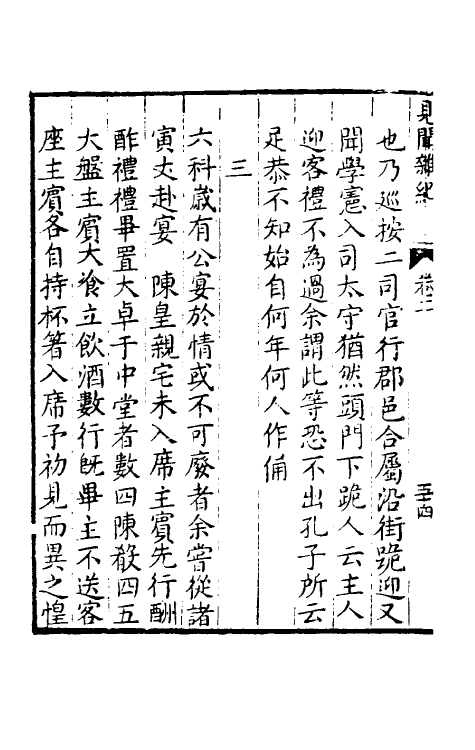 見聞雜紀 卷二 五十四
也乃巡按二司官行郡邑合屬沿街跪迎又
聞學憲入司太守猶然頭門下跪人云主人
迎客禮不為過余謂此等恐不出孔子所云
足恭不知始自何年何人作俑
三
六科歲有公宴於情或不可廢者余嘗從諸
寅丈赴宴 陳皇親宅未入席主賓先行酬
酢禮禮畢置大卓于中堂者數四陳殽四五
大盤主賓大飡立飲酒數行既畢主不送客
座主賓各自持杯箸入席予初見而異之惶